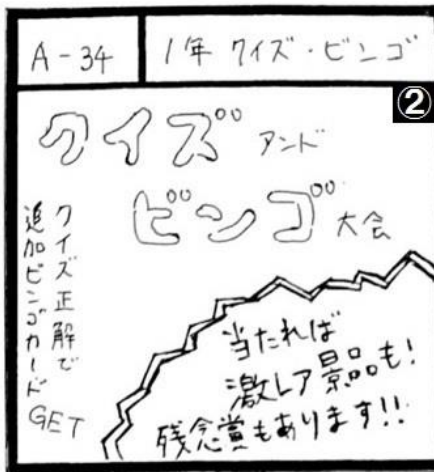 A-34
1年 クイズ・ビンゴ
②
クイズ アンド
ビンゴ 大会
クイズ正解で
追加ビンゴカード
GET
当たれば
激レア景品も!
残念賞もあります!!